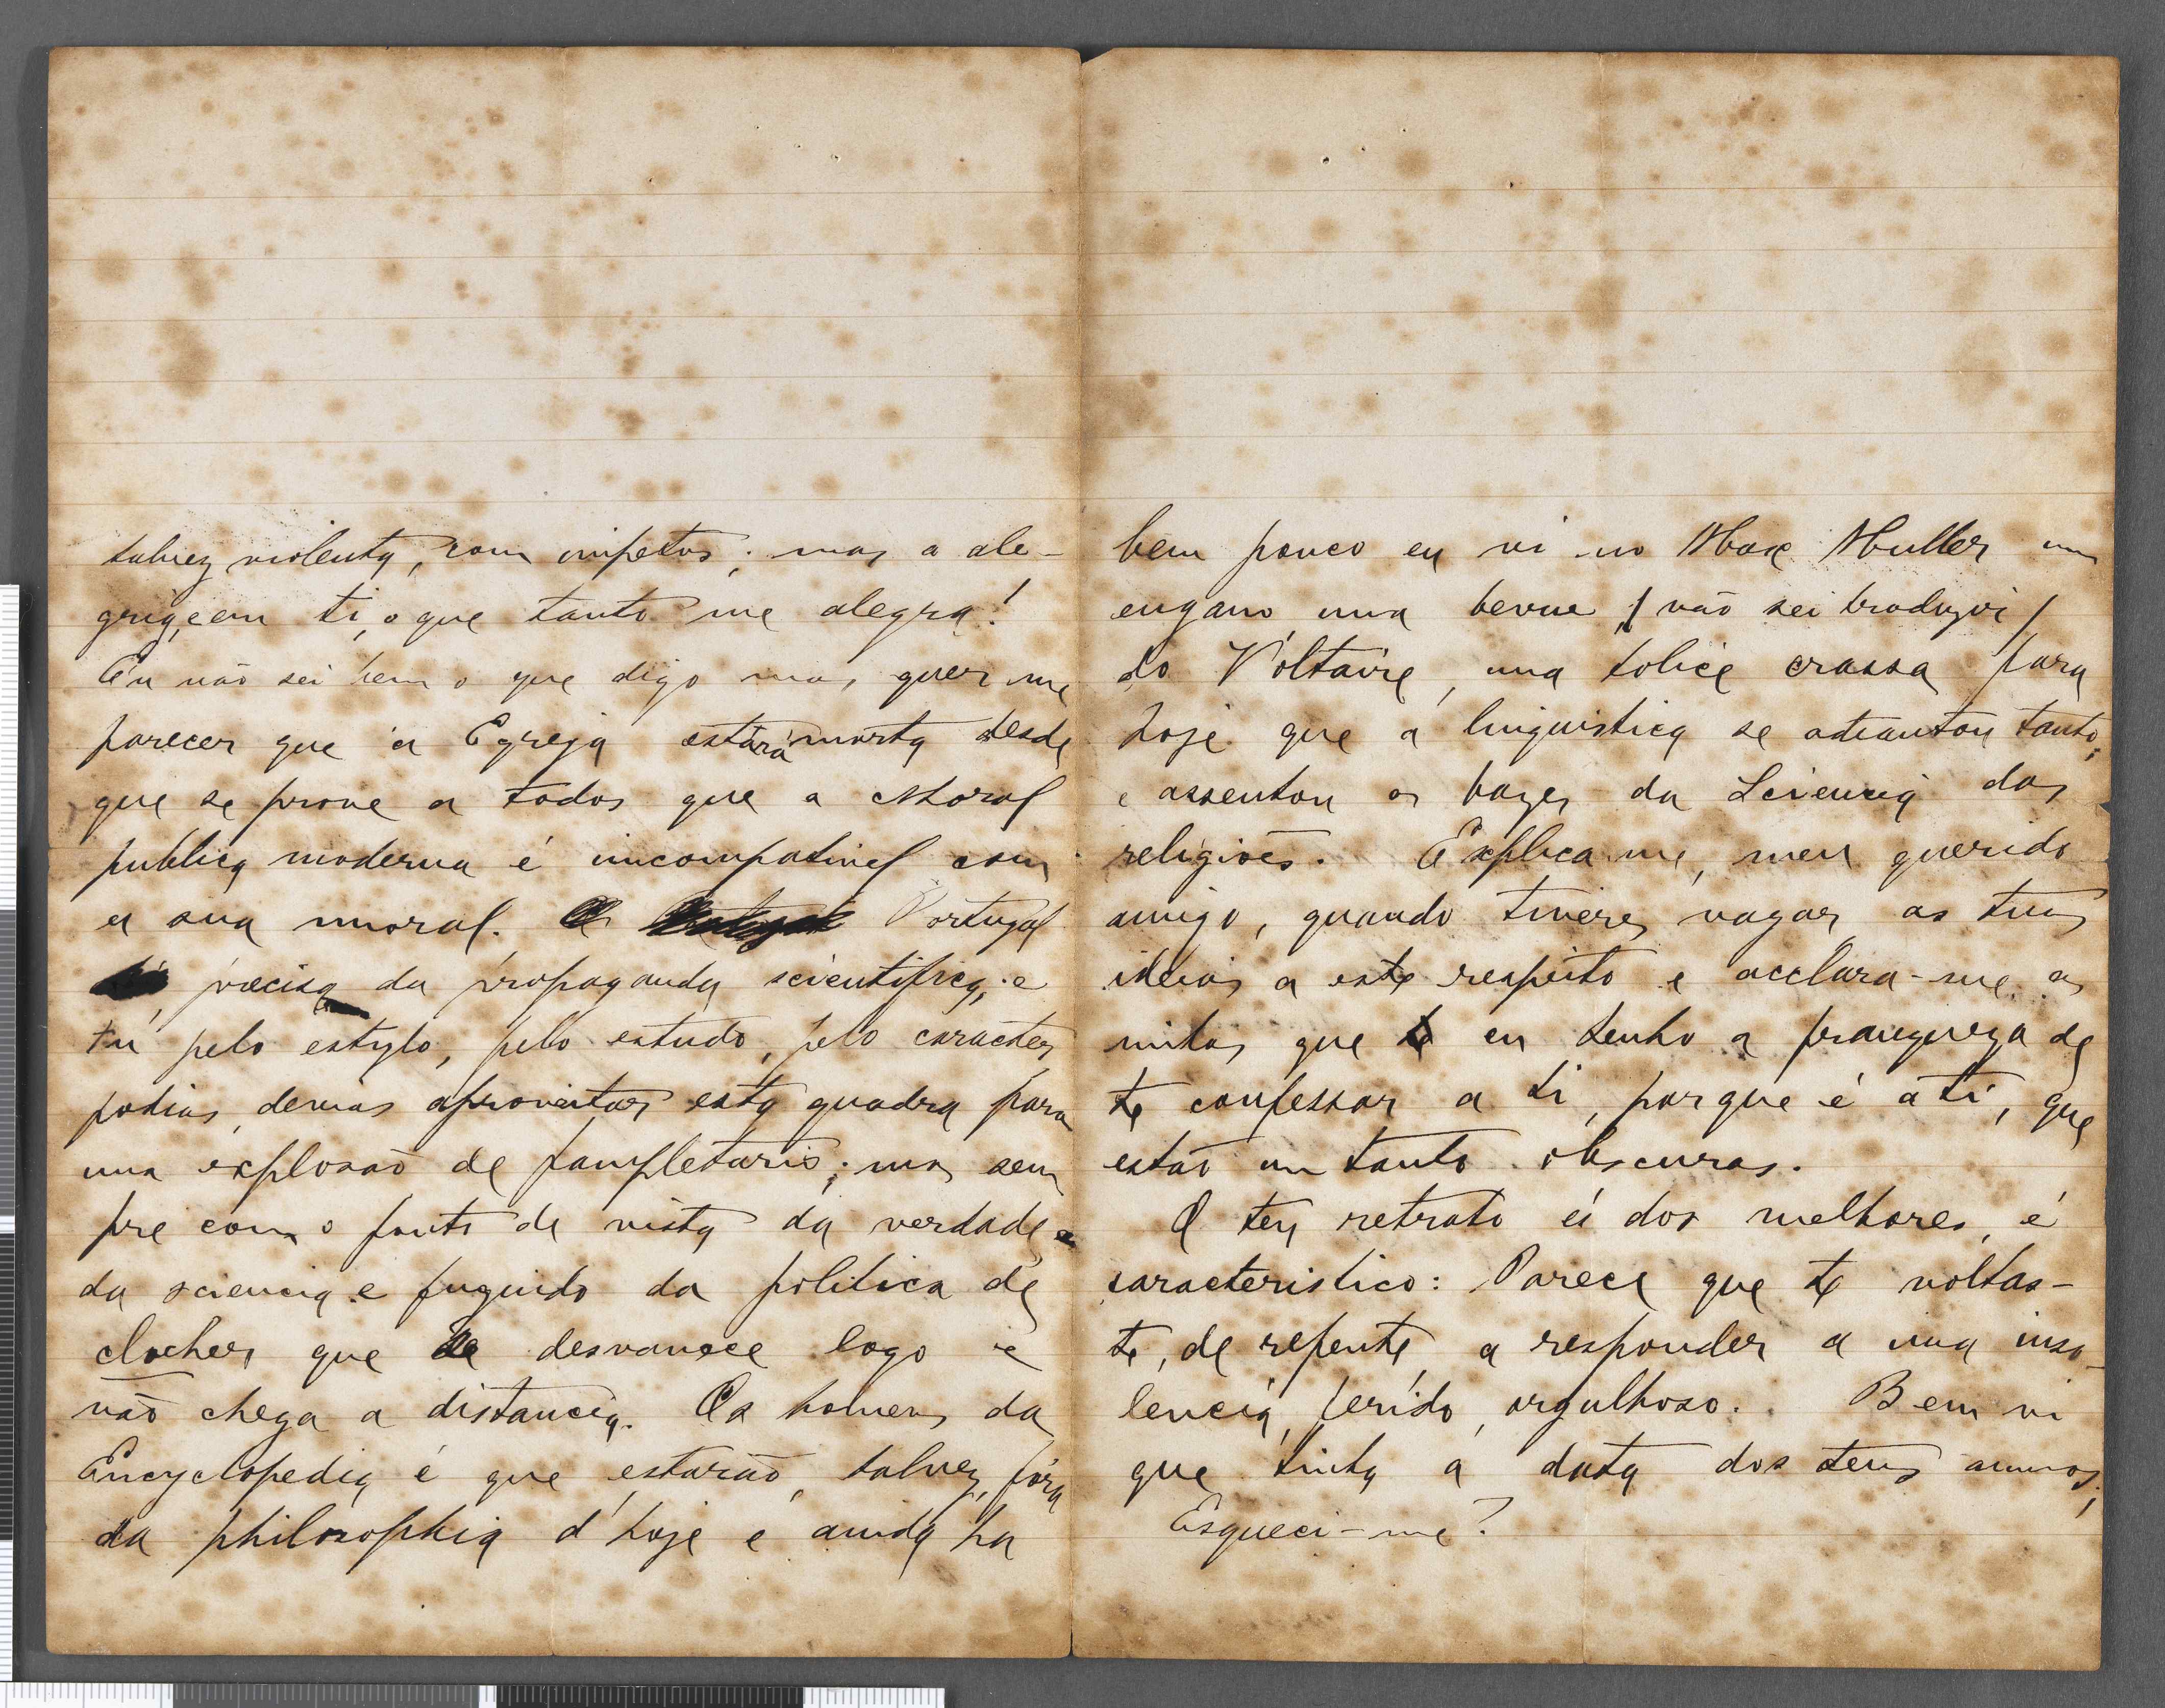 talvez violenta, com impetos; mas a ale-
gria, e em ti, o que tanto me alegra!
Eu não sei bem o que digo mas, quer-me
parecer que a Egreja estará morta desde
que se prove a todos que a Moral
publica moderna é imcompativel com
a sua moral. Portugal
precisa da propaganda scientifica; e
tu pelo estylo, pelo estudo, pelo caracter
podias, devias aproveitar esta quadra para
uma explosão de pampletario; mas sem
pre com o ponto de vista da verdade e
da sciencia e fugindo da politica de
clocher que se desvanece logo e
não chega a distancia. Os homens da
Encyclopedia é que estarão, talvez, fóra
da philosophia d'hoje e ainda ha
bem pouco eu vi no Max Muller um
engano uma bevue / não sei traduzir /
do Voltaire, uma tolice crassa para
hoje que a linguistica se adiantou tanto,
e assentou as bazes da Sciencia das
religiões. Explica-me, meu querido
amigo, quando tiveres vagar, as tuas
ideias a este respeito e acclara-me as
minhas que eu tenho a franqueza de
te confessar a ti, porque é a ti, que
estão um tanto obscuras.
O teu retrato é dos melhores, é
caracteristico: Parece que te voltas-
te, de repente, a responder a uma inso-
lencia, ferido, orgulhoso. Bem vi
que tinha a data dos teus annos;
Esqueci-me?